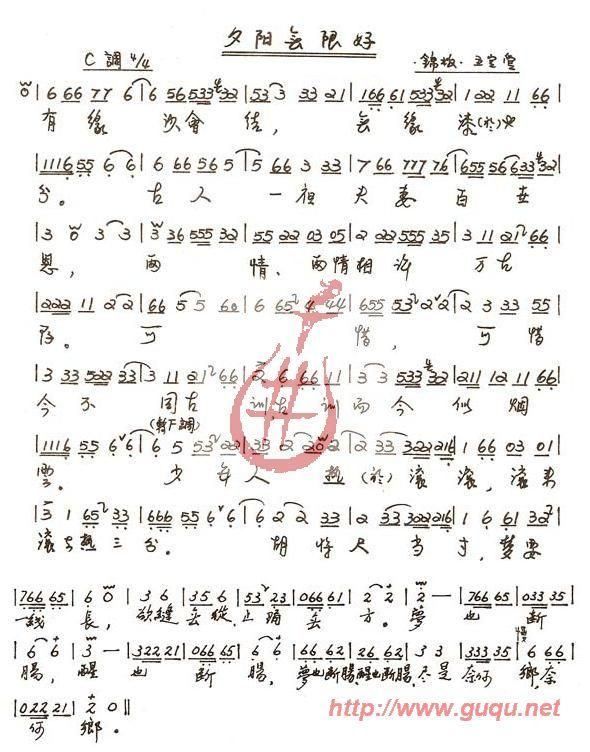 夕阳無限好
C調4/4
錦板·王宝堂
0 | 6 66 77 6 | 6 56 533 32 | 53 3 33 21 | 166 61 533 32 | 1 22 11 66
有緣 会 佳， 無緣 漆(於)
| 1116 55 6 6 | 6 66 56 5 | 5 66 3 33 | 7 66 777 76 | 655 556 32
分。 古人 一祖夫妻百世
| 3 0 3 3 | 3 36 555 32 | 55 22 03 05 | 2 22 555 35 | 3 11 21 66
恩，兩 情、兩情相許 万古
| 222 11 2 2 | 66 5 5 60 | 6 65 4 44 | 655 53 2 2 | 2 3 33 55
存。可 惜，可惜
| 3 33 522 33 | 3 11 21 66 | 2 6 66 11 | 3 3 533 32 | 211 12 11 66
今不 同古 訓，古訓而今似烟
(轉下調)
| 1116 55 6 6 | 6 5 53 22 | 33 2 202 2 | 2 33 322 216 | 1 66 03 01
雲。少年人 热(於)滾滾，滾来
| 3 1 65 33 | 666 55 66 6 | 6 2 2 33 | 2 33 322 216 | 1 6 61 32
滾去热三分。胡将尺当寸，梦要
| 766 65 | 6 0 | 3 6 | 35 6 | 53 23 | 066 61 | 2 2 | 2 — | 766 65 | 033 35
一线長，欲縫無從止痛無方。夢也断
慢
| 6 6 | 3 — | 322 21 | 066 65 | 6 6 | 066 62 | 26 62 | 3 3 | 333 35 | 6 66
腸，醒也断腸，夢也断腸醒也断腸，尽是奈何鄉，奈
| 022 21 | 2 0 ||
何鄉。
http://www.guqu.net